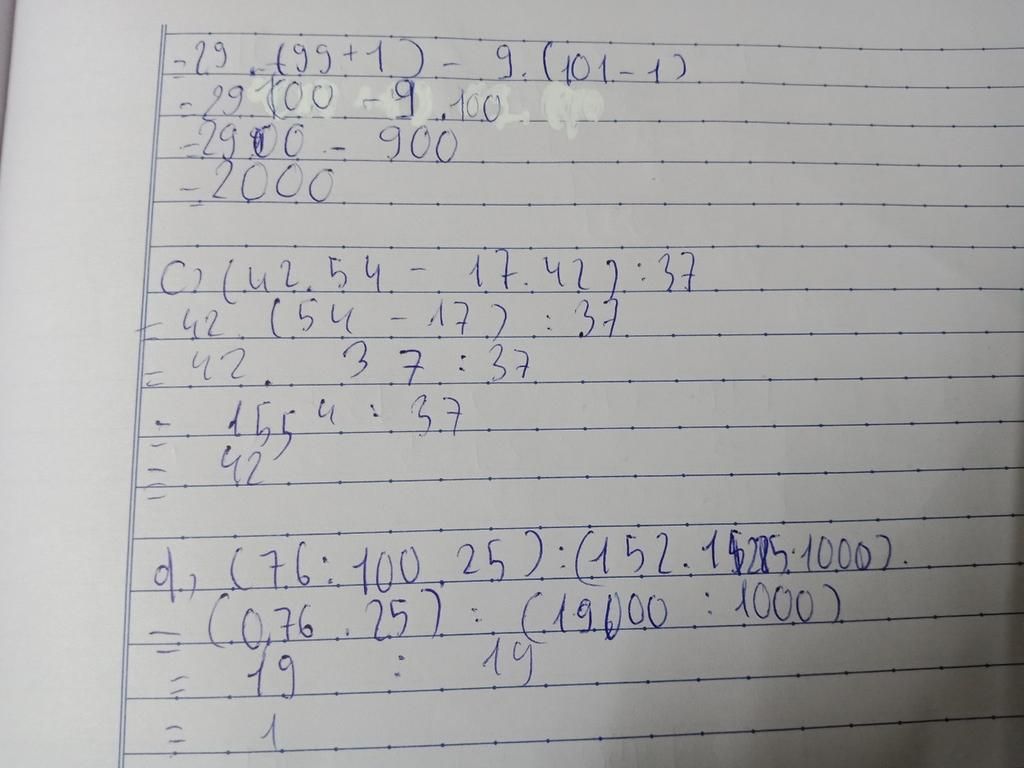 = 29 . (99 + 1) - 9 . (101 - 1)
= 29 100 - 9 . 100
= 2900 - 900
= 2000
C) (42 . 54 - 17 . 42) : 37
= 42 . (54 - 17) : 37
= 42 . 37 : 37
= 1554 : 37
= 42
d, (76 : 100 . 25) : (152 . 125 : 1000)
= (0,76 . 25) : (19000 : 1000)
= 19 : 19
= 1